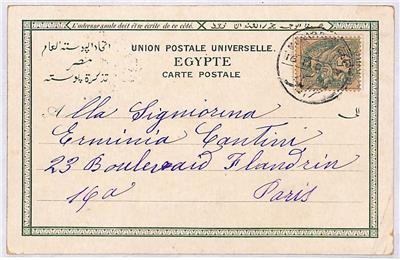 L'adresse seule doit être écrite de ce côté.
UNION POSTALE UNIVERSELLE.
EGYPTE
CARTE POSTALE
اتحاد البوسته العام
مصر
تذكرة بوسته
Alla Signiorina
Erminia Cantini
23 Boulevaid Flandrin
16a
Paris